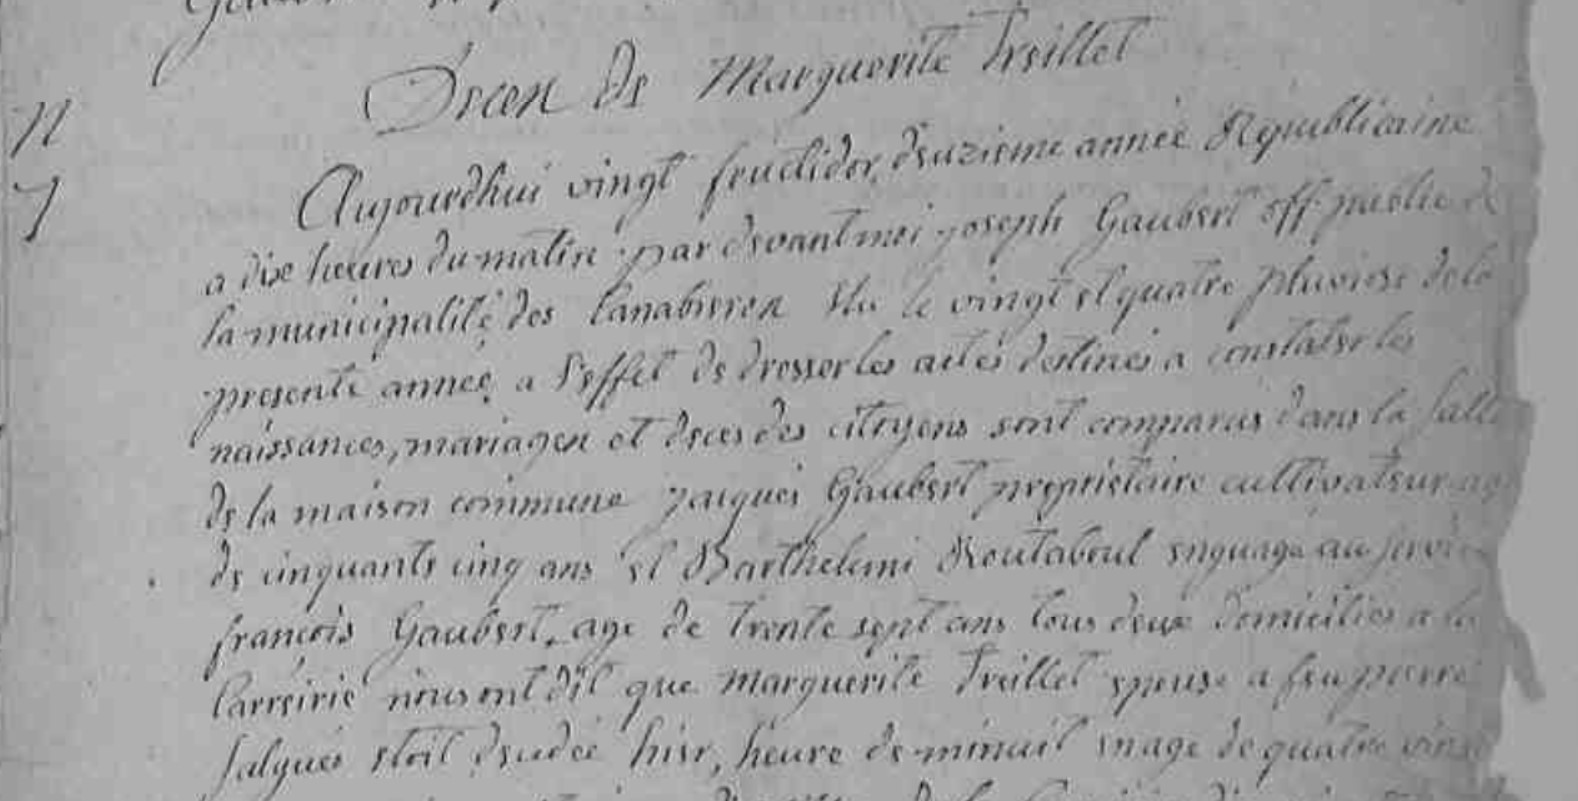 Deces de Marguerite Treillet
Aujourdhui vingt fructidor, deuzieme année Republicaine
a dix heures du matin par devant moi joseph Gaubert off. public de
la municipalité des Canabieres elu le vingt et quatre pluviose de la
presente année, a l'effet de dresser les actes destinés a constater les
naissances, mariages et deces des citoyens sont comparus dans la salle
de la maison commune jacques Gaubert proprietaire cultivateur agé
de cinquante cinq ans et Barthelemi Routaboul enguagé au service
françois Gaubert, age de trente sept ans tous deux domiciliés a la
Carreirie nous ont dit que marguerite Treillet epouse a feu pierre
salgues etoit decedée hier, heure de minuit en age de quatre vingt